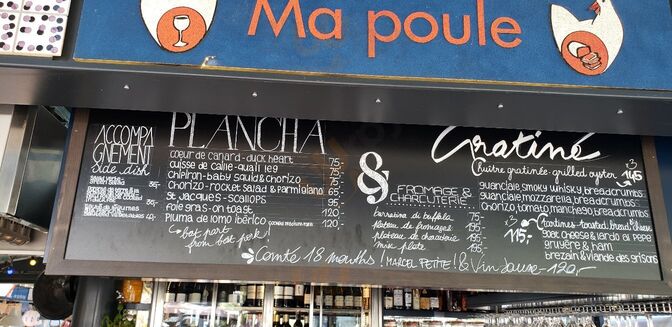 Ma poule
ACCOMPA
GNEMENT
Side dish
PLANCHA
coeur de canard-duck heart 75-
cuisse de caille-quail leg 75-
chipiron-baby squid & chorizo 75-
Chorizo-rocket salad & parmigiano 65-
St Jacques-scallops 95-
foie gras-on toast 120-
Pluma de lomo iberico 120-
best part
from best pork!
&
FROMAGE &
CHARCUTERIE
burratina di bufala 75-
plateau de fromages 195-
plateau de charcuterie 195-
mix plate 195-
Gratiné
Huître gratinée-grilled oyster x3 145
guanciale, smoky whisky, breadcrumbs
guanciale, mozzarella, breadcrumbs
chorizo, tomato, manchego, breadcrumbs
x3 115,- tartines-toasted bread cheese
goat cheese & lardo al pepe
gruyère & ham
brezain & viande des grisons
Comté 18 months! MARCEL PETITE! & Vin Jaune-120,-